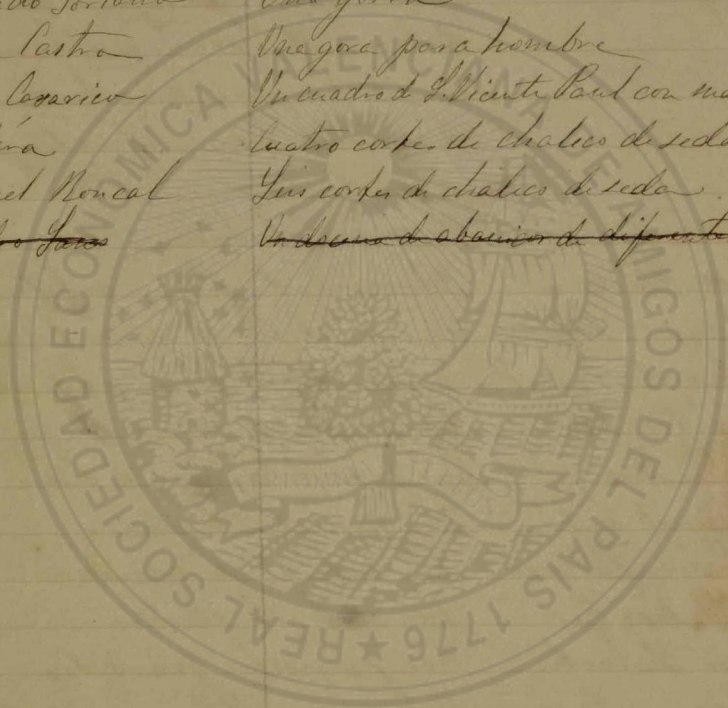 Soriano Una gorra
Castro Una gora para hombre
Casarico Un cuadro d S. Vicente Paul con ma
Cuatro cortes de chaleco de seda
el Roncal Seis cortes de chaleco de seda
Un docena de abanicos de diferente
REAL SOCIEDAD ECONOMICA VALENCIANA DE AMIGOS DEL PAIS 1776